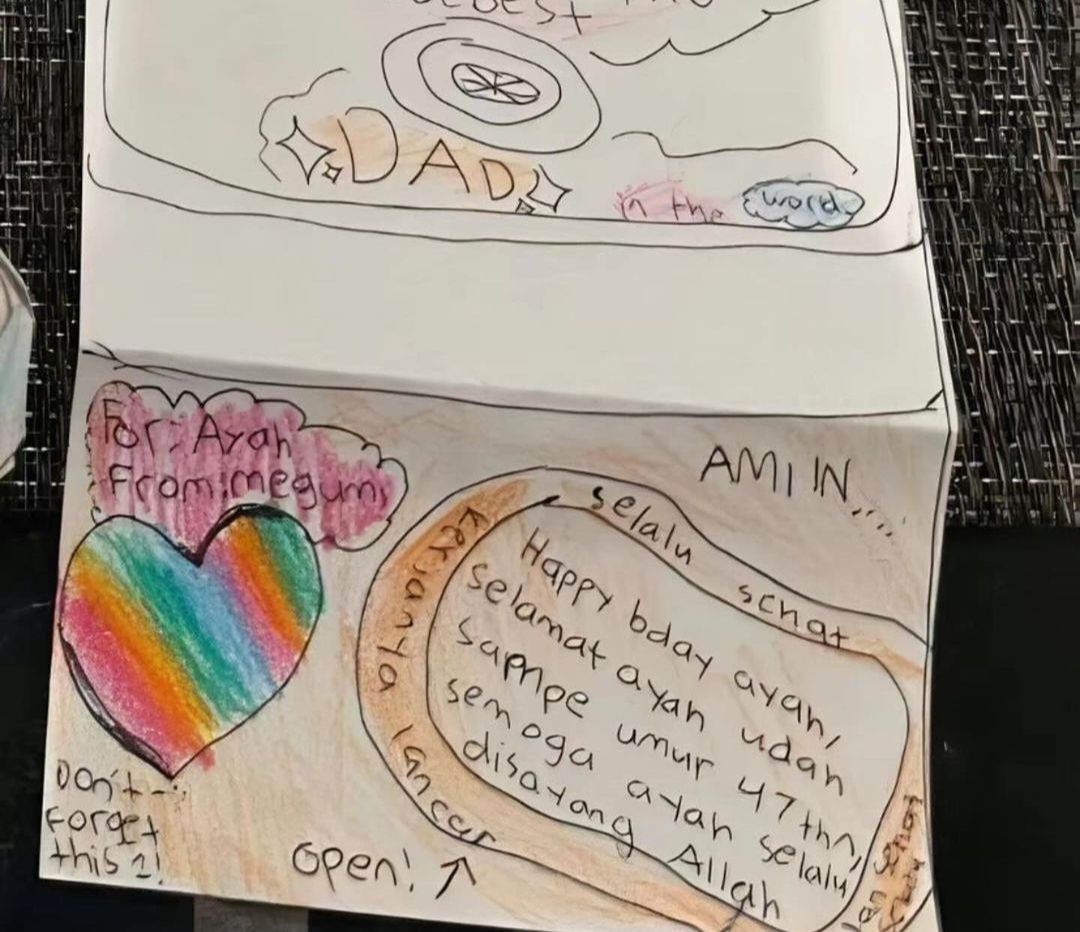 BEST
DAD
in the
world
For: Ayah
From: megumi
AMIIN....
selalu sehat
kerjanya lancar
Happy bday ayah,
selamat ayah udah
sampe umur 47 thn,
semoga ayah selalu
disayang Allah
Don't
forget
this 2!
open!